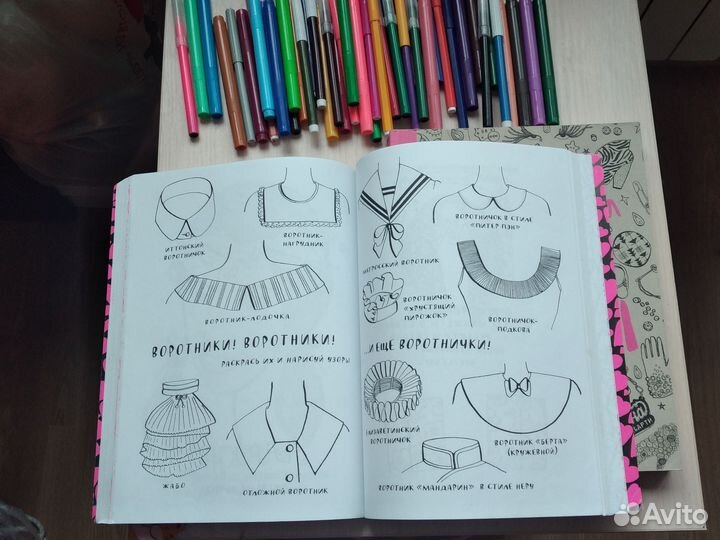 ИТТОНСКИЙ
ВОРОТНИЧОК
ВОРОТНИК-
НАГРУДНИК
ВОРОТНИК-ЛОДОЧКА
ВОРОТНИКИ! ВОРОТНИКИ!
РАСКРАСЬ ИХ И НАРИСУЙ УЗОРЫ
ЖАБО
ОТЛОЖНОЙ ВОРОТНИК
МАТРОССКИЙ ВОРОТНИК
ВОРОТНИЧОК В СТИЛЕ
«ПИТЕР ПЭН»
ВОРОТНИЧОК
«ХРУСТЯЩИЙ
ПИРОЖОК»
ВОРОТНИЧОК-
ПОДКОВА
...И ЕЩЕ ВОРОТНИЧКИ!
ЕЛИЗАВЕТИНСКИЙ
ВОРОТНИЧОК
ВОРОТНИК «БЕРТА»
(КРУЖЕВНОЙ)
ВОРОТНИК «МАНДАРИН» В СТИЛЕ НЕРУ
Avito